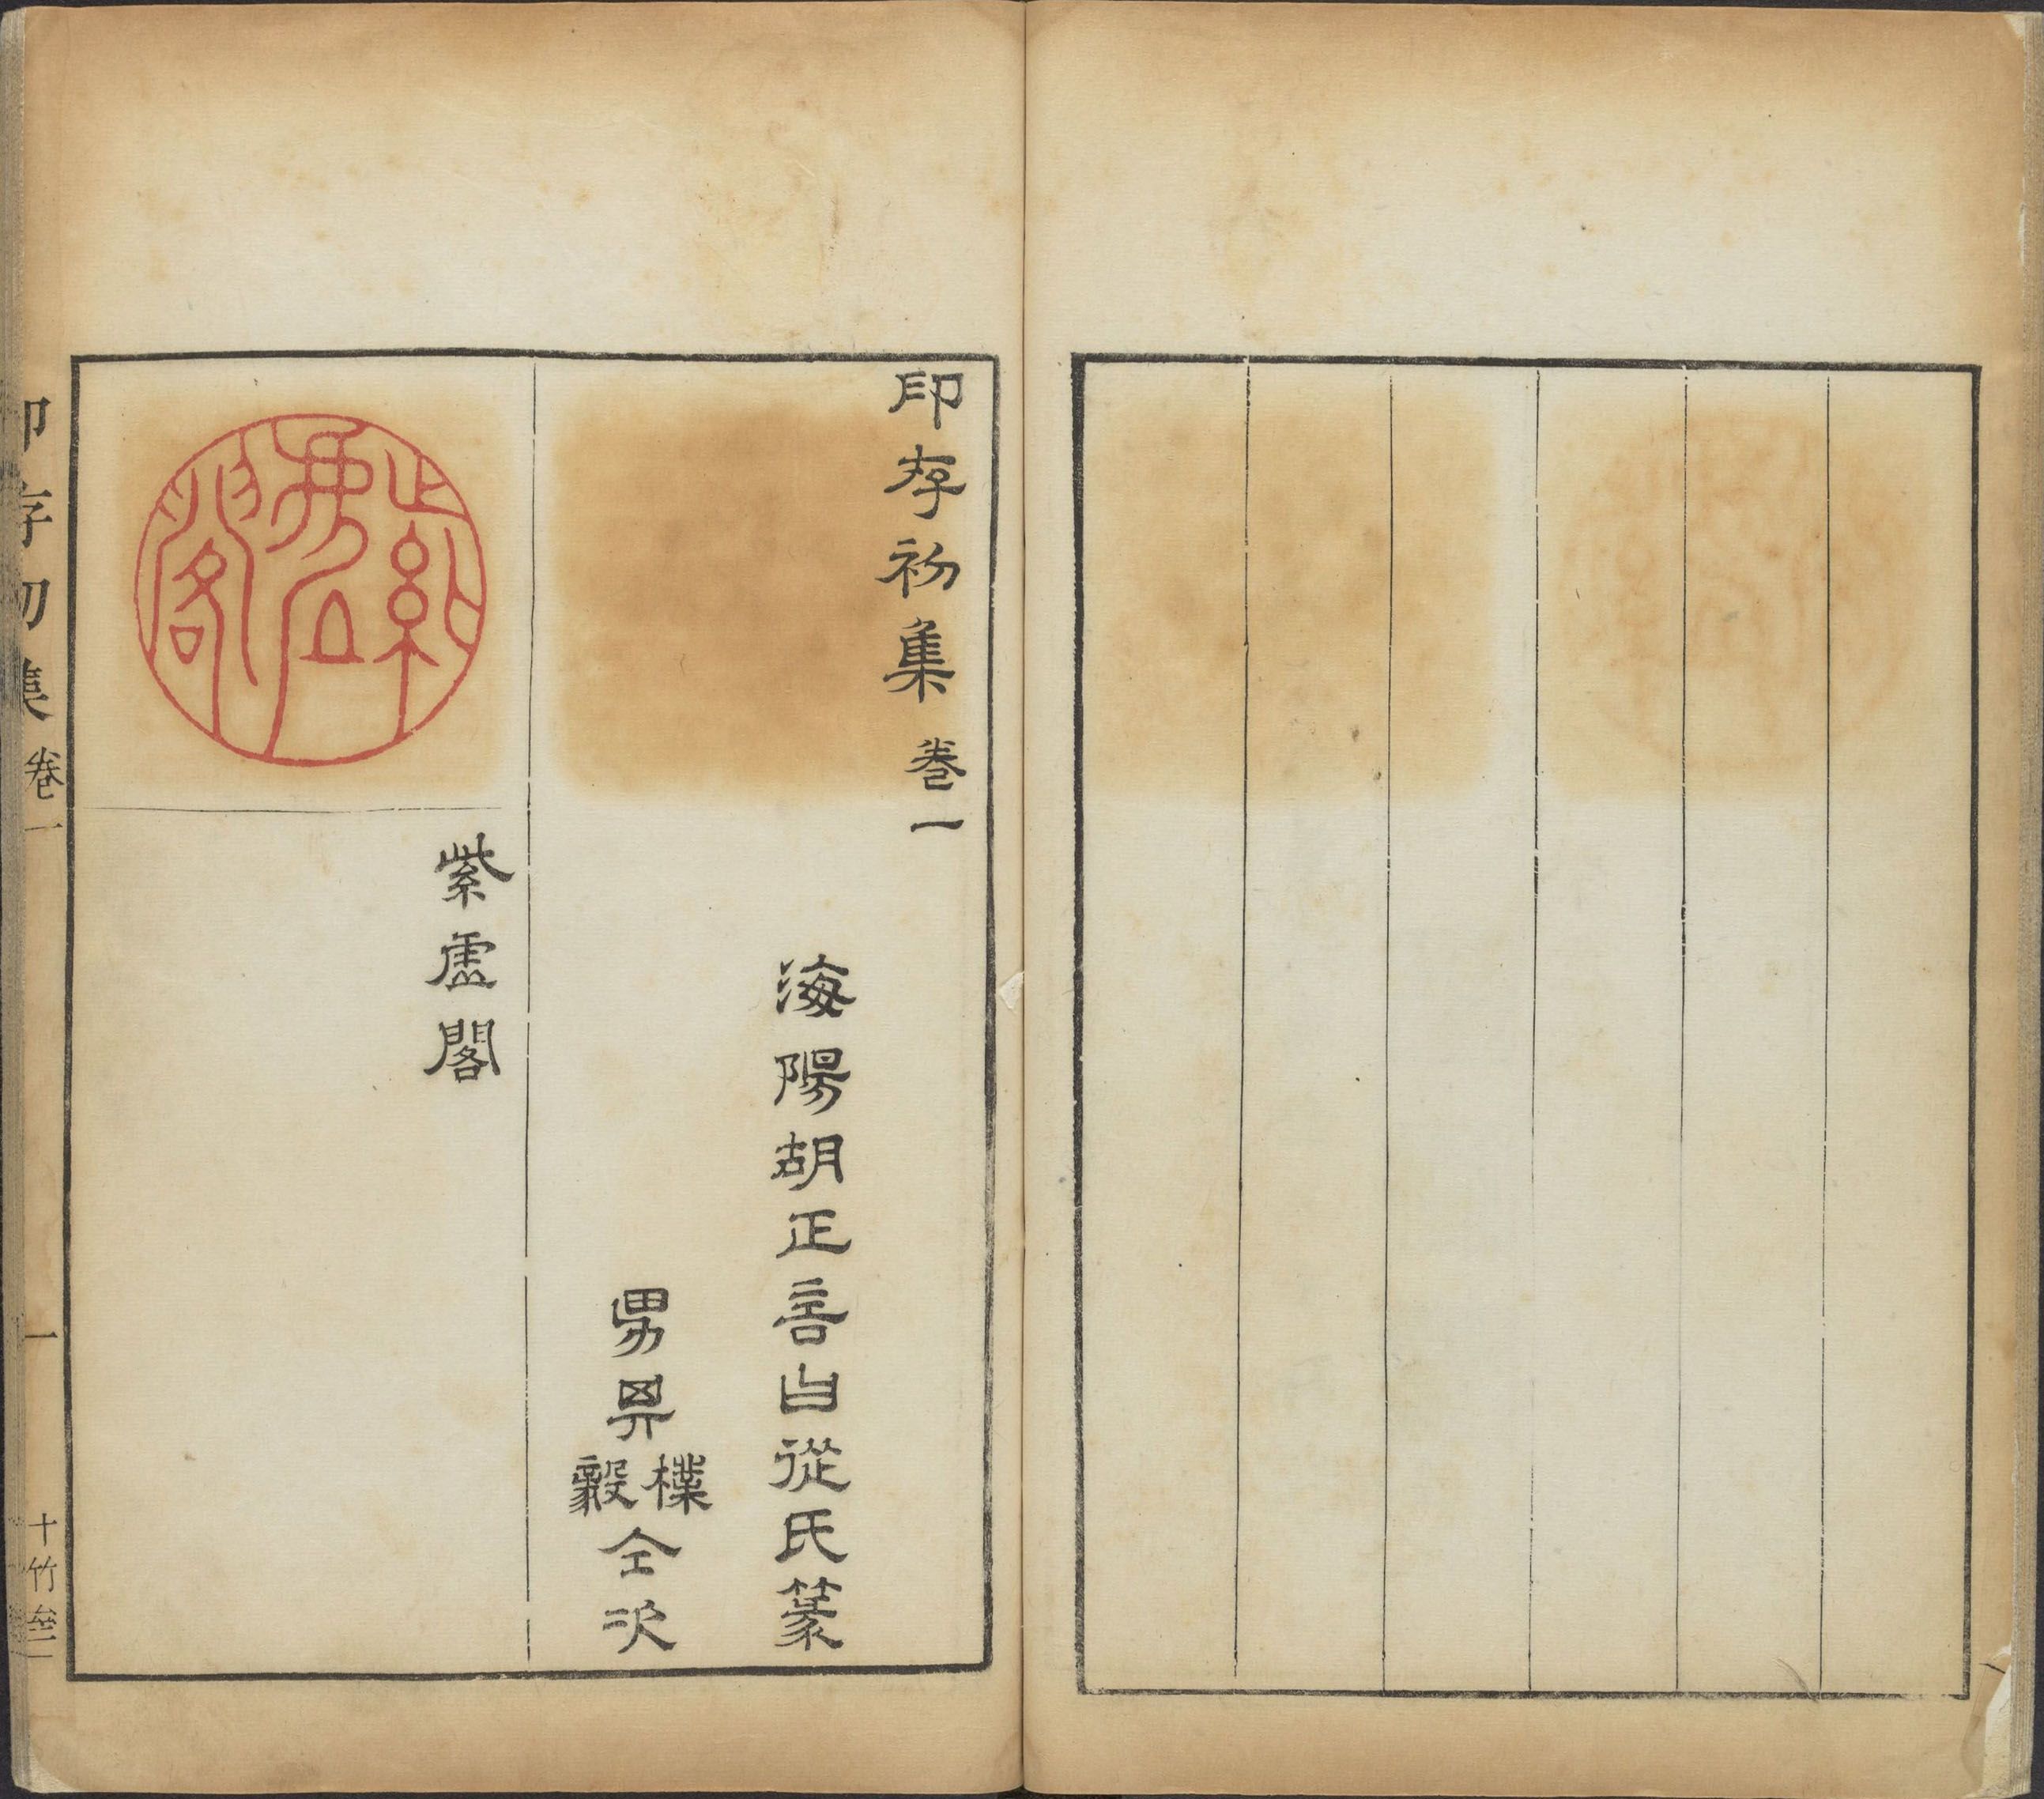 印存初集 卷一
海陽胡正言曰從氏篆
男其樸毅仝次
紫虛閣
紫虛閣
印存初集 卷一 一 十竹齋